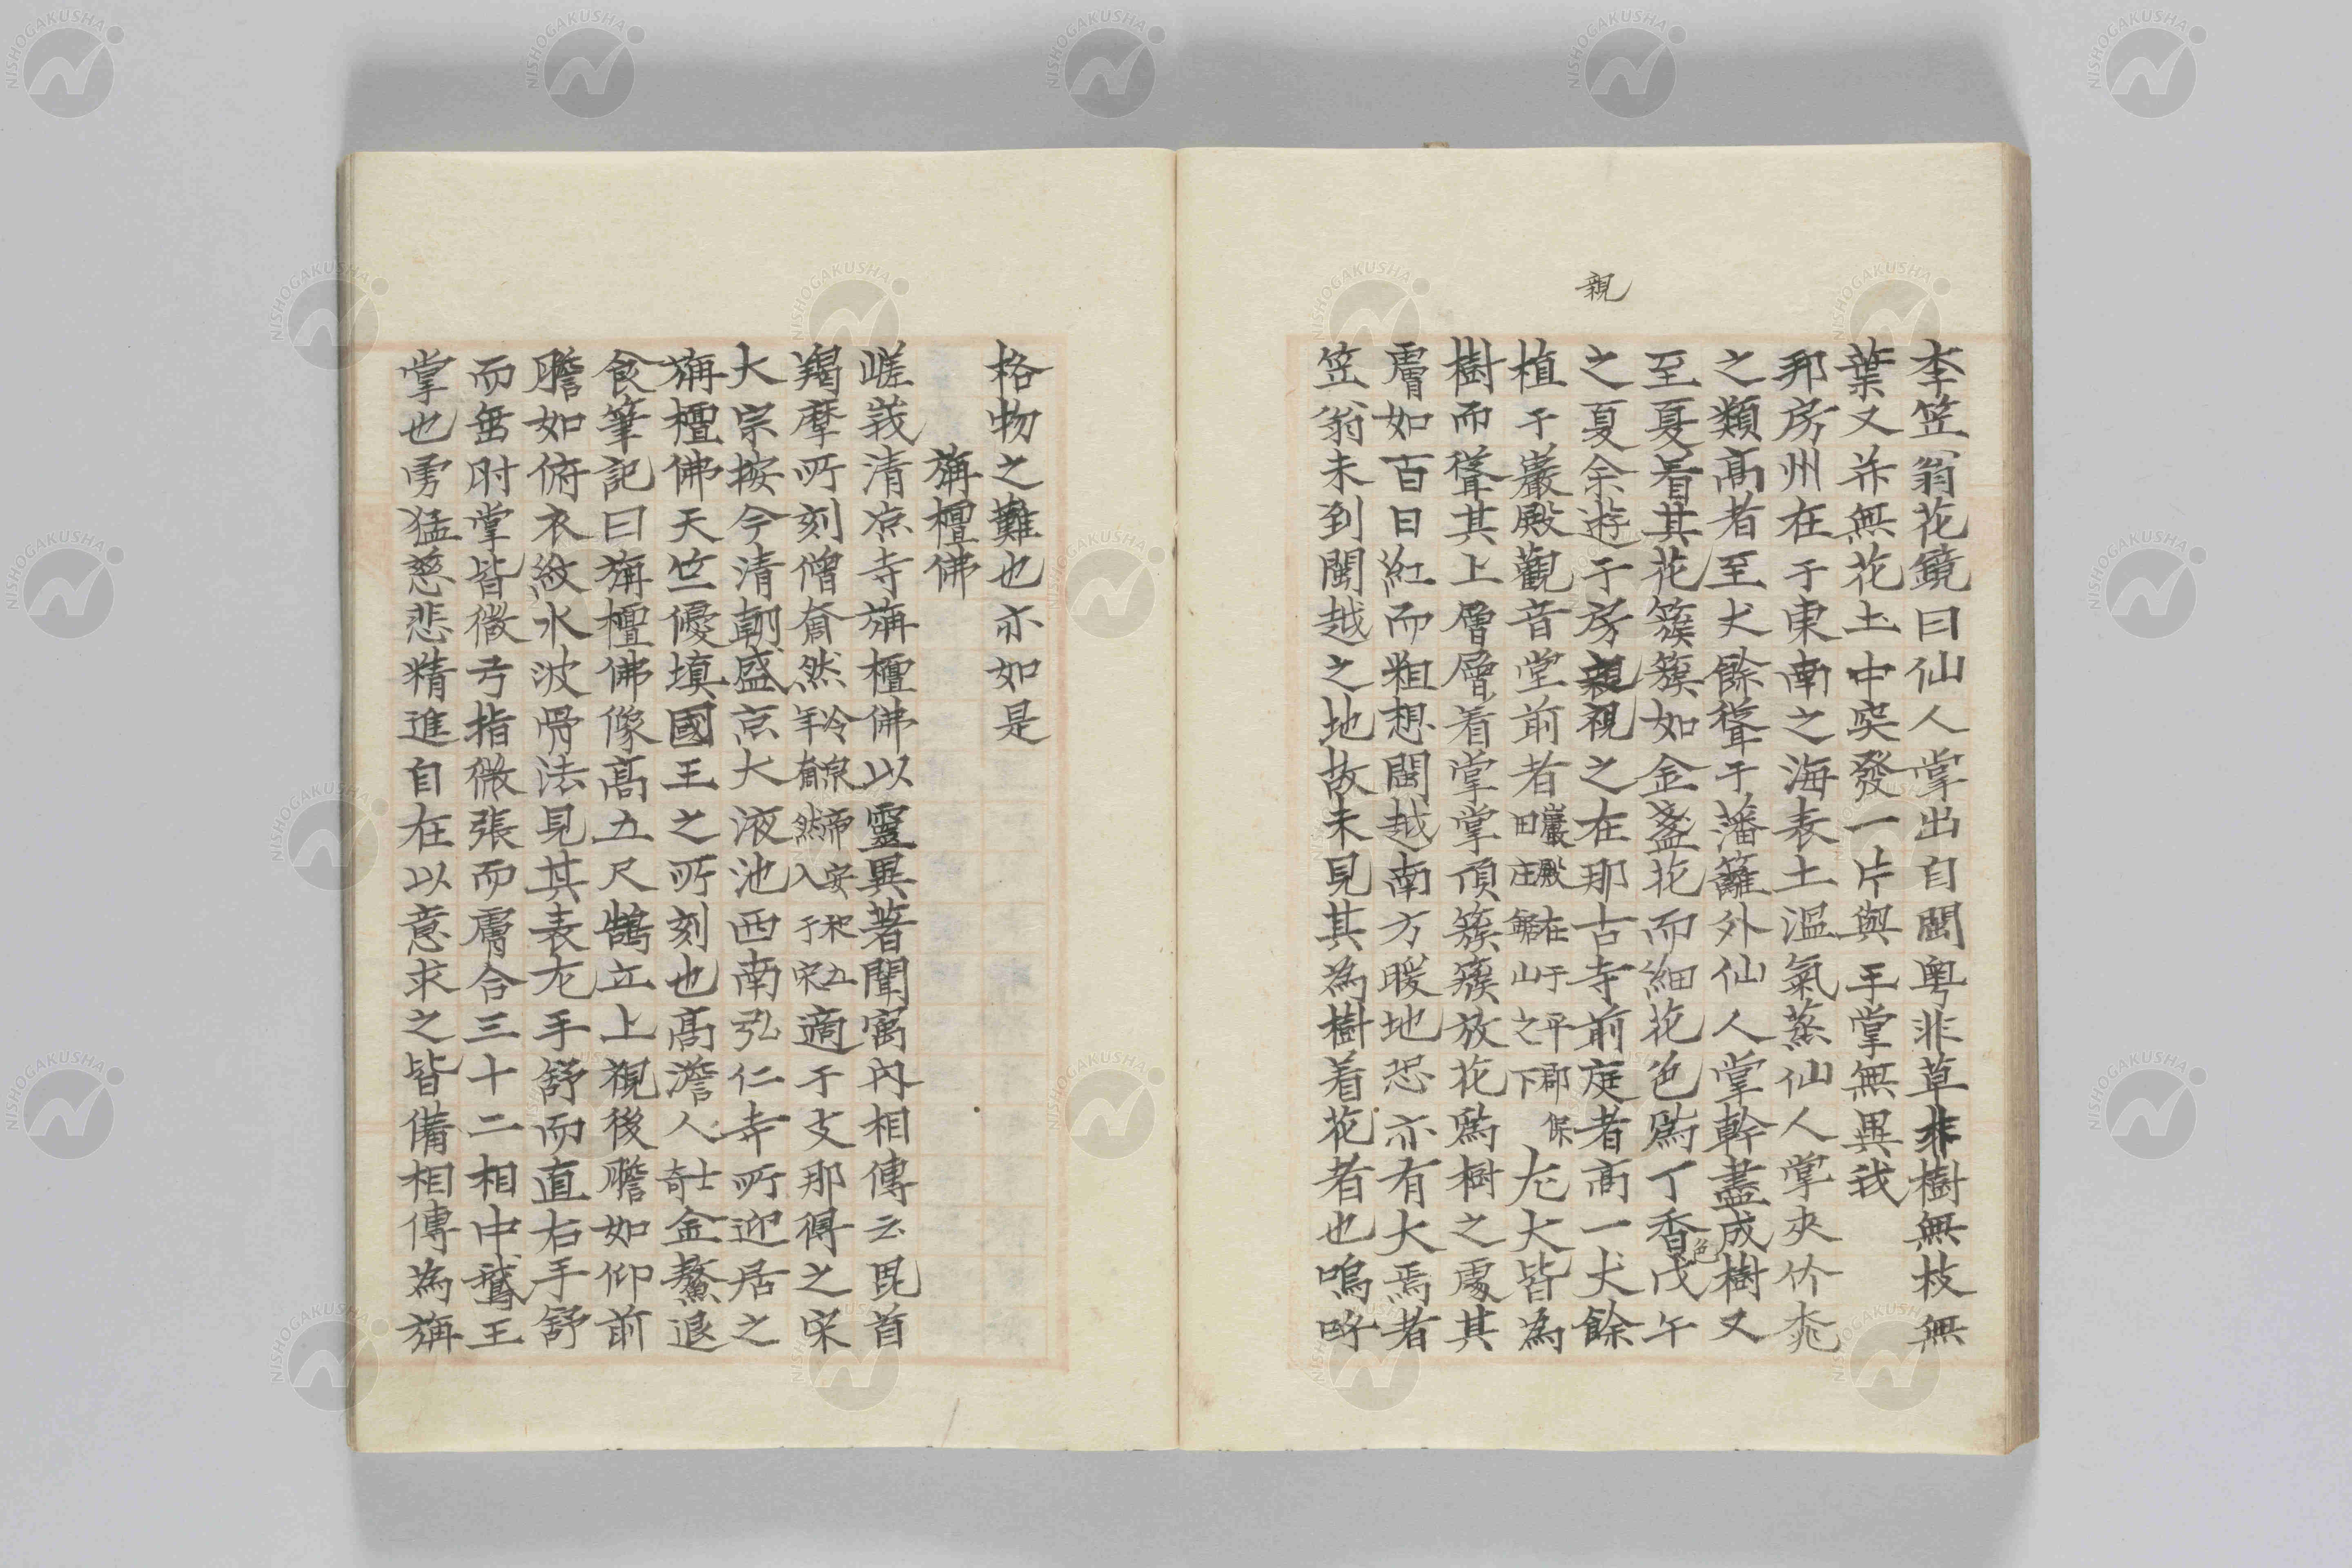 親
李笠翁花鏡曰仙人掌出自閩粤非草非樹無枝無
葉又並無花土中突發一片與手掌無異我
邦房州在于東南之海表土温氣蒸仙人掌夾竹桃
之類高者至丈餘聳于藩籬外仙人掌幹盡成樹又
至夏着其花簇簇如金盞花而細花色爲丁香色戊午
之夏余遊于房親視之在那古寺前庭者高一丈餘
植于巖殿觀音堂前者巖殿在于平郡保田庄鋸山之下尤大皆為
樹而聳其上層層着掌掌頂簇簇放花爲樹之處其
膚如百日紅而粗想閩越南方暖地恐亦有大焉者
笠翁未到閩越之地故未見其為樹着花者也嗚呼
格物之難也亦如是
旃檀佛
嵯峩清凉寺旃檀佛以靈異著聞寓内相傳云毘首
羯摩所刻僧奝然冷泉帝安和五年奝然入于宋適于支那得之宋
大宗按今清朝盛京大液池西南弘仁寺所迎居之
旃檀佛天竺優填國王之所刻也高澹人奇士金鰲退
食筆記曰旃檀佛像高五尺鵠立上視後瞻如仰前
瞻如俯衣紋水波骨法見其表左手舒而直右手舒
而垂肘掌皆微弓指微張而膚合三十二相中鵞王
掌也勇猛慈悲精進自在以意求之皆備相傳為旃